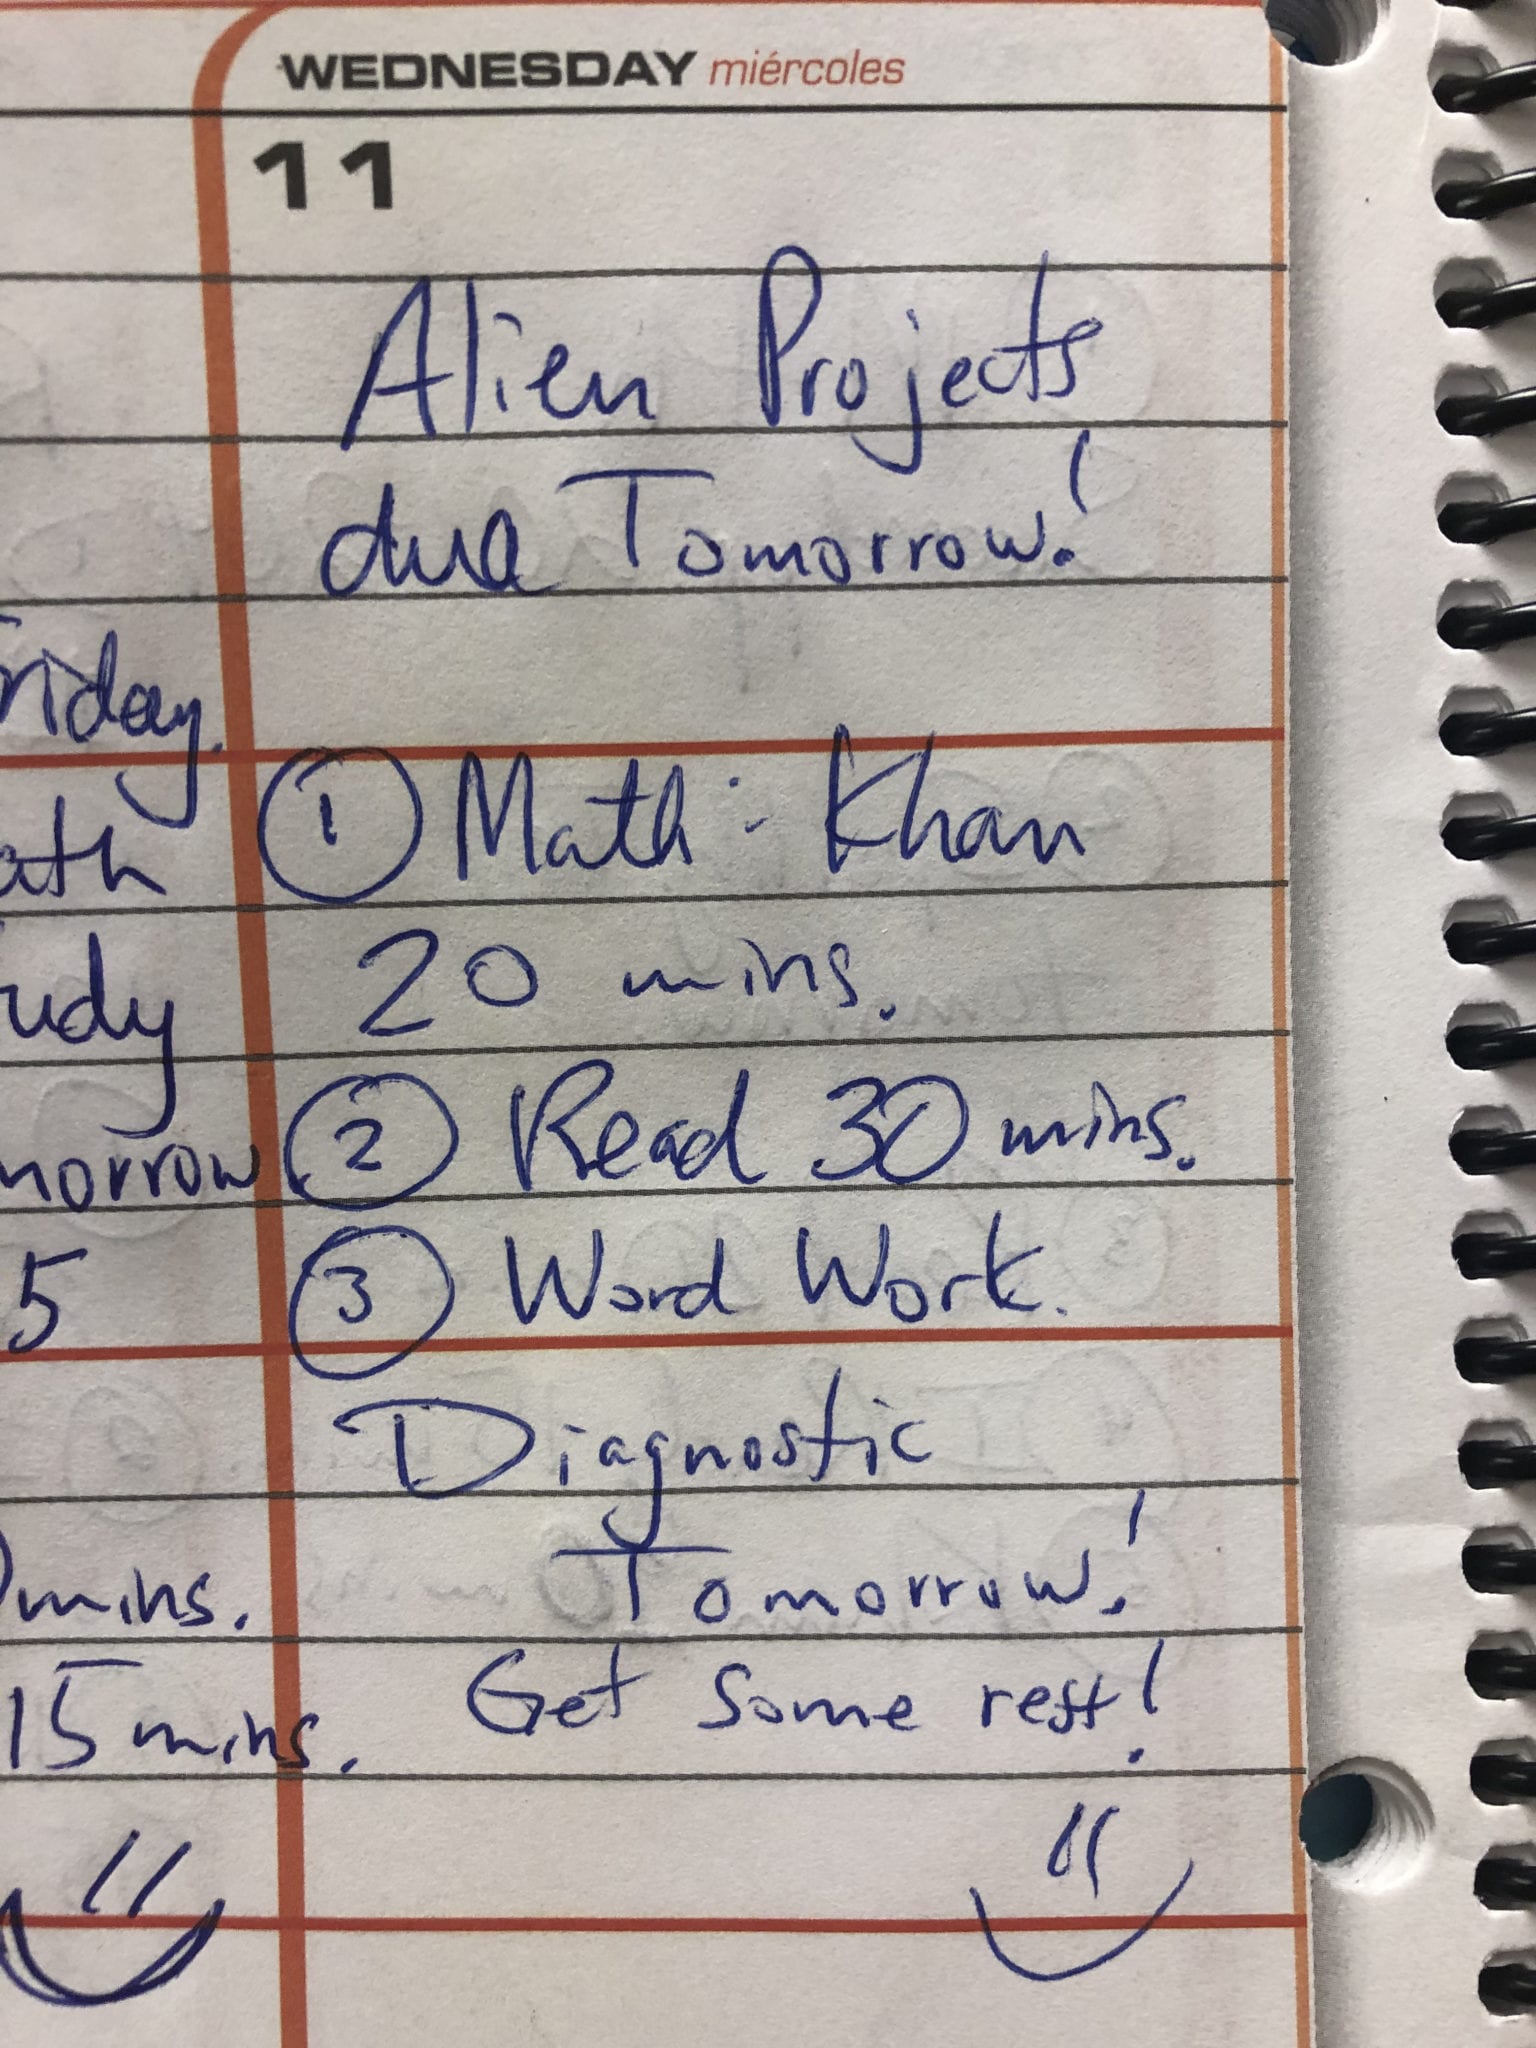 WEDNESDAY miércoles
11
Alien Projects
due Tomorrow!
① Math: Khan
20 mins.
② Read 30 mins.
③ Word Work.
Diagnostic
Tomorrow!
Get some rest!
riday.
ath
udy
morrow
5
mins.
15 mins.